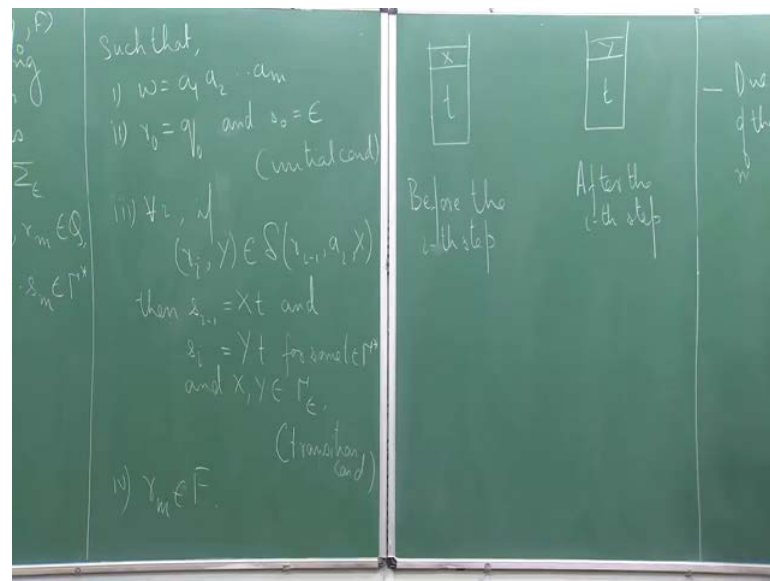 , F)
ng
s
Σ_ε
r_m ∈ Q,
s_m ∈ Γ*
Such that,
i) w = a₁ a₂ ... a_m
ii) r₀ = q₀ and s₀ = ε
(initial cond)
iii) ∀i, if
(r_i, Y) ∈ δ(r_{i-1}, a_i, X)
then s_{i-1} = Xt and
s_i = Yt for some t ∈ Γ*
and X, Y ∈ Γ_ε.
(transition cond)
iv) r_m ∈ F.
X
t
Before the
i-th step
Y
t
After the
i-th step
— Due
of the